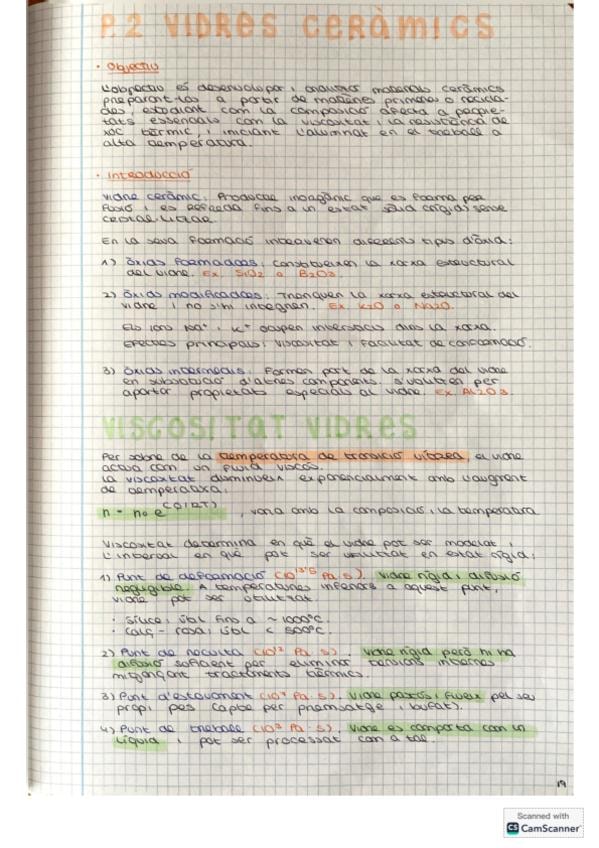 P.2 VIDRES CERÀMICS
· Objectiu
L'objectiu és desenvolupar i analitzar materials ceràmics
preparant-los a partir de matèries primeres o recicla-
des, estudiant com la composició afecta a propie-
tats essencials com la viscositat i la resistència de
xoc tèrmic, i iniciant l'alumnat en el treball a
alta temperatura.
· Introducció
Vidre ceràmic: Producte inorgànic que es forma per
fusió i es refreda fins a un estat sòlid (rígid) sense
cristal·litzar.
En la seva formació intervenen diferents tipus d'òxid:
1) Òxids formadors: Constitueixen la xarxa estructural
del vidre. Ex. SiO2 o B2O3.
2) Òxids modificadors: Trenquen la xarxa estructural del
vidre i no s'hi integren. Ex. K2O o Na2O.
Els ions Na+ i K+ ocupen intersticis dins la xarxa.
Efectes principals: viscositat i facilitat de conformació.
3) Òxids intermedis: Formen part de la xarxa del vidre
en substitució d'altres components. S'utilitzen per
aportar propietats especials al vidre. Ex Al2O3.
VISCOSITAT VIDRES
Per sobre de la temperatura de transició vítrea, el vidre
actua com un fluid viscós.
La viscositat disminueix exponencialment amb l'augment
de temperatura:
n = no e(Q/RT) , varia amb la composició i la temperatura
Viscositat determina en què el vidre pot ser modelat i
l'interval en què pot ser utilitzat en estat rígid:
1) Punt de deformació (10^13'5 Pa·s). Vidre rígid i difusió
negligible. A temperatures inferiors a aquest punt,
vidre pot ser utilitzat.
· Sílice: útil fins a ~ 1000ºC.
· Calç - rosa: útil < 500ºC.
2) Punt de recuita (10^12 Pa·s). Vidre rígid però hi ha
difusió suficient per eliminar tensions internes
mitjançant tractaments tèrmics.
3) Punt d'estovament (10^7 Pa·s). Vidre pastós i flueix pel seu
propi pes (apte per premsatge i bufat).
4) Punt de treball (10^3 Pa·s). Vidre es comporta com un
líquid i pot ser processat com a tal.
19
Scanned with
CS CamScanner